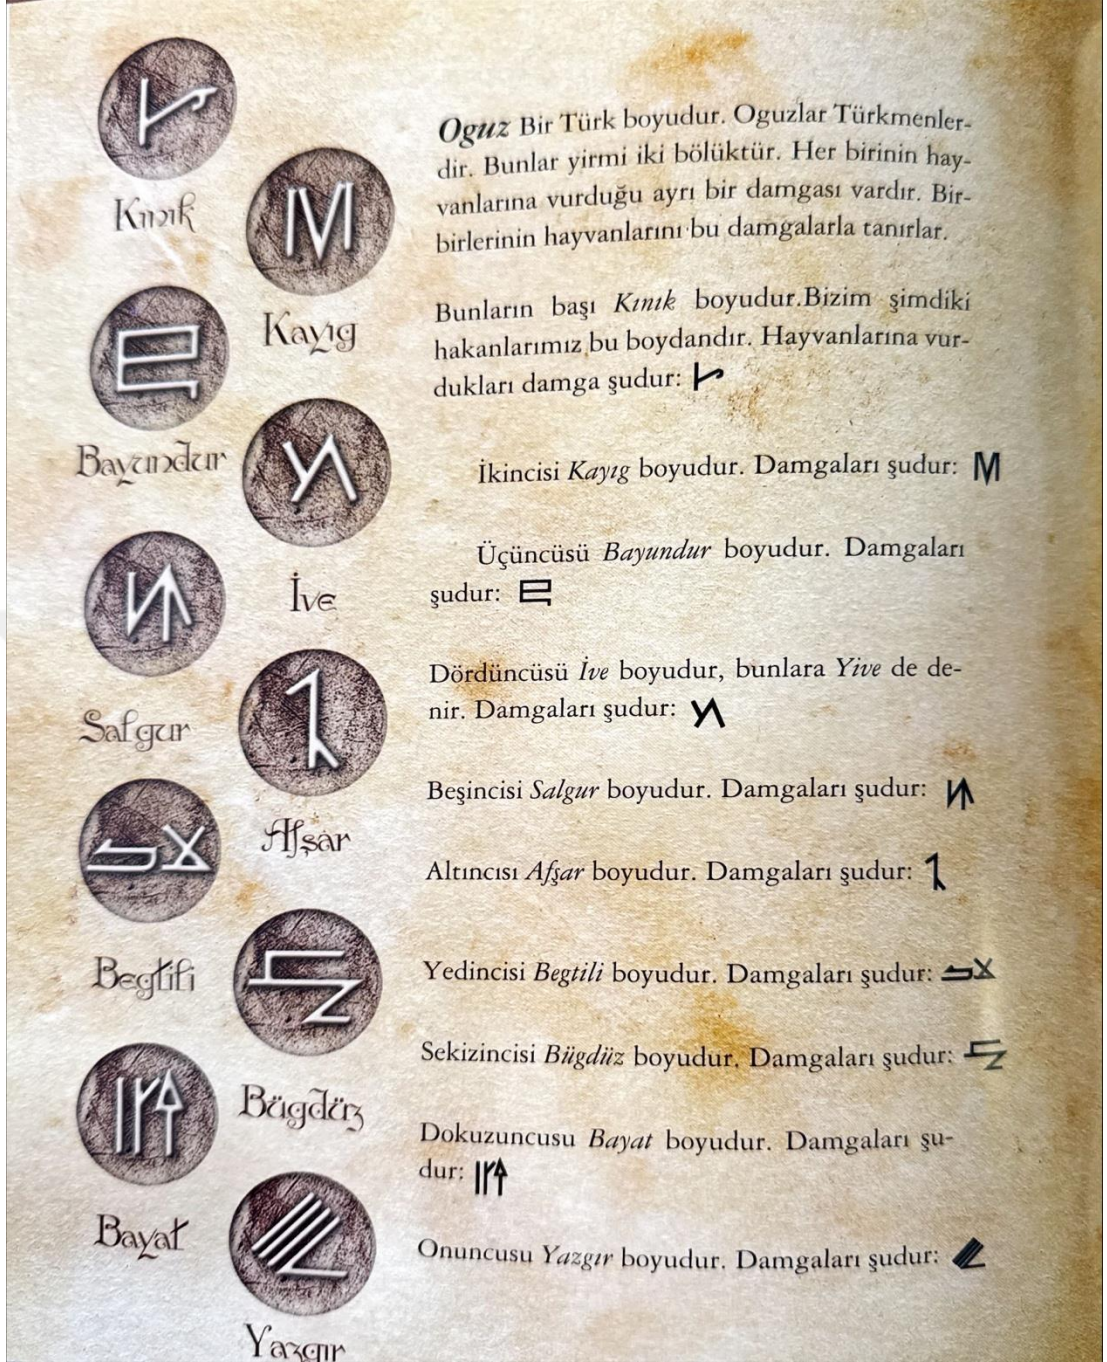 Kınık
Kayıg
Bayundur
İve
Salgur
Afşar
Begtili
Bügdüz
Bayat
Yazgır
Oguz Bir Türk boyudur. Oguzlar Türkmenler-
dir. Bunlar yirmi iki bölüktür. Her birinin hay-
vanlarına vurduğu ayrı bir damgası vardır. Bir-
birlerinin hayvanlarını bu damgalarla tanırlar.
Bunların başı Kınık boyudur.Bizim şimdiki
hakanlarımız bu boydandır. Hayvanlarına vur-
dukları damga şudur:
İkincisi Kayıg boyudur. Damgaları şudur:
Üçüncüsü Bayundur boyudur. Damgaları
şudur:
Dördüncüsü İve boyudur, bunlara Yive de de-
nir. Damgaları şudur:
Beşincisi Salgur boyudur. Damgaları şudur:
Altıncısı Afşar boyudur. Damgaları şudur:
Yedincisi Begtili boyudur. Damgaları şudur:
Sekizincisi Bügdüz boyudur. Damgaları şudur:
Dokuzuncusu Bayat boyudur. Damgaları şu-
dur:
Onuncusu Yazgır boyudur. Damgaları şudur: